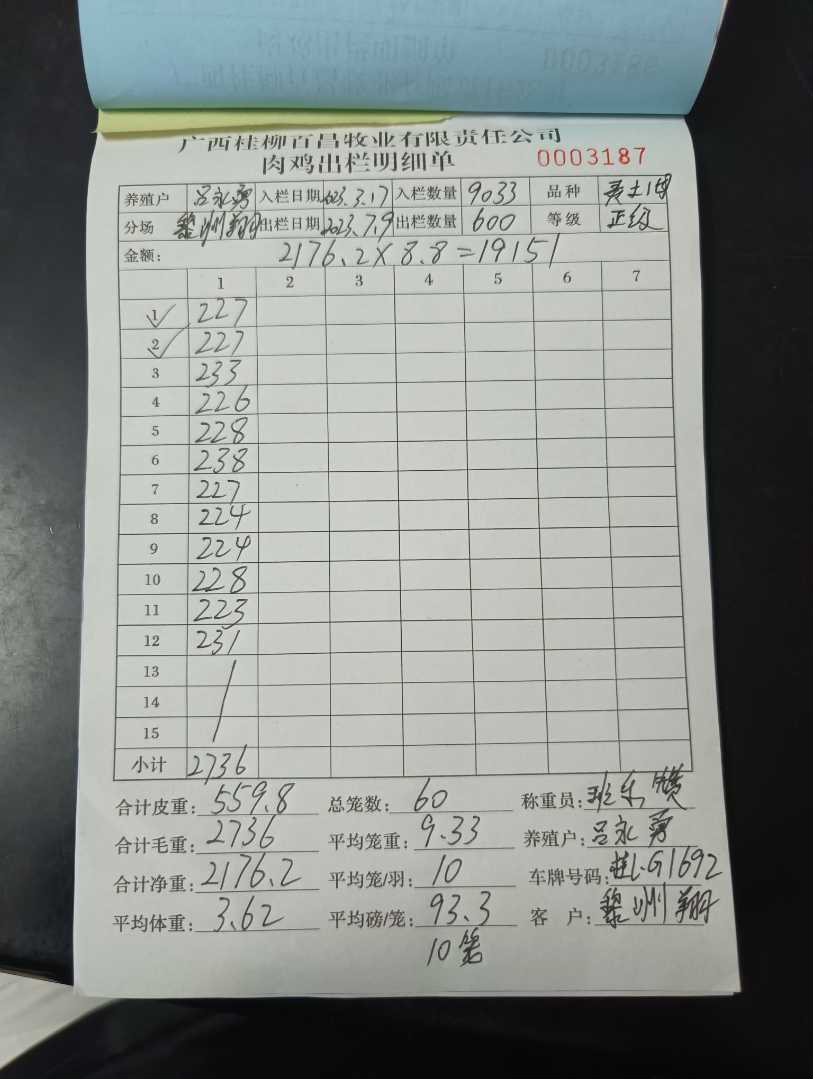 广西桂柳百昌牧业有限责任公司
肉鸡出栏明细单 0003187
养殖户 吕永勇 入栏日期 2023.3.17 入栏数量 9033 品种
分场 黎洲翔 出栏日期 2023.7.9 出栏数量 600 等级 正级
金额: 2176.2×8.8=19151
1 2 3 4 5 6 7
1 227
2 227
3 233
4 226
5 228
6 238
7 227
8 224
9 224
10 228
11 223
12 231
13
14
15
小计 2736
合计皮重: 559.8 总笼数: 60 称重员: 班乐
合计毛重: 2736 平均笼重: 9.33 养殖户: 吕永勇
合计净重: 2176.2 平均笼/羽: 10 车牌号码: 桂L·G1692
平均体重: 3.62 平均磅/笼: 93.3 客户: 黎洲翔
10